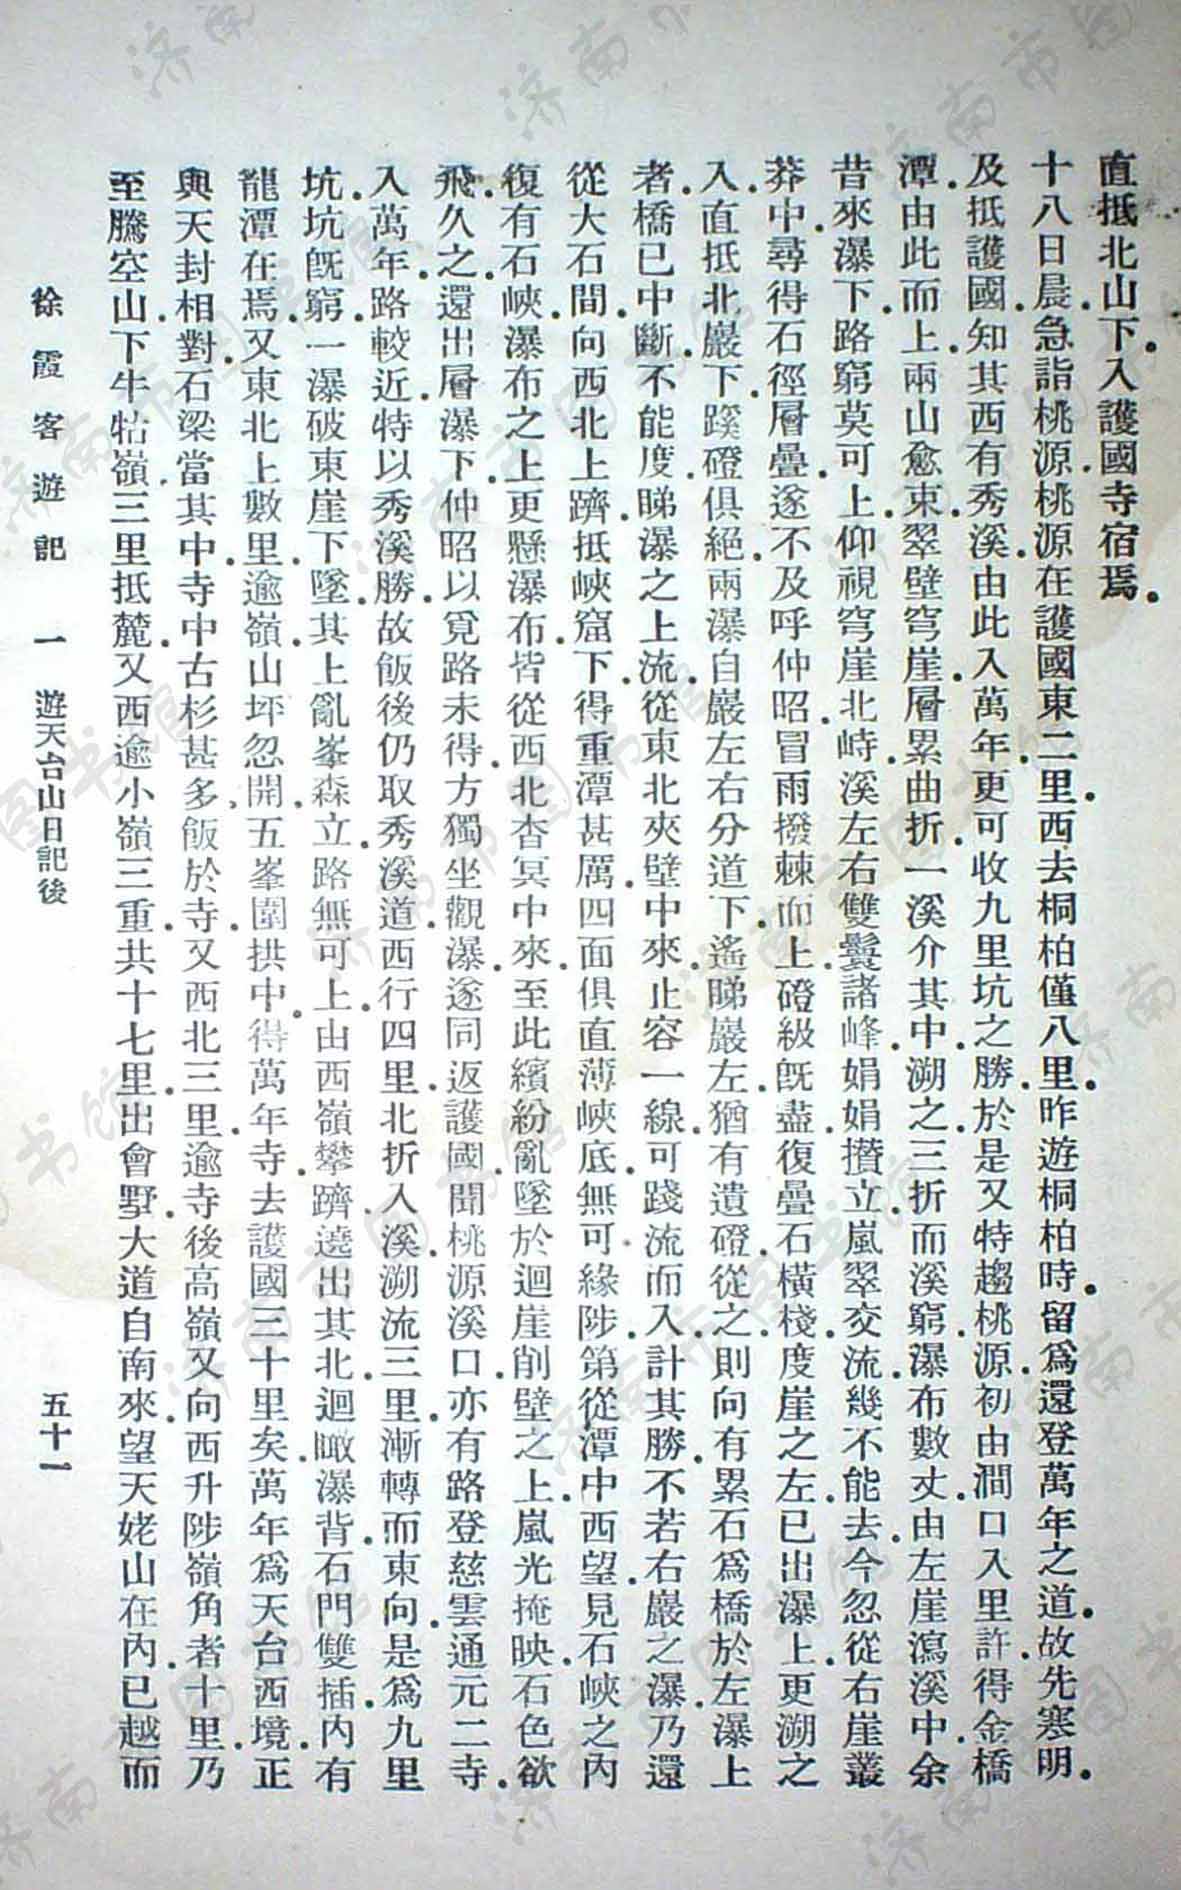 直抵北山下入護國寺宿焉
十八日晨急詣桃源桃源在護國東二里西去桐柏僅八里昨遊桐柏時留爲還登萬年之道故先寒明
及抵護國知其西有秀溪由此入萬年更可收九里坑之勝於是又特趨桃源初由澗口入里許得金橋
潭由此而上兩山愈束翠壁穹崖層累曲折一溪介其中溯之三折而溪窮瀑布數丈由左崖瀉溪中余
昔來瀑下路窮莫可上仰視穹崖北峙溪左右雙鬟諸峰娟娟攢立嵐翠交流幾不能去今忽從右崖叢
莽中尋得石徑層疊遂不及呼仲昭冒雨撥棘而上磴級既盡復疊石橫棧度崖之左已出瀑上更溯之
入直抵北巖下蹊磴俱絕兩瀑自巖左右分道下遙睇巖左猶有遺磴從之則向有累石爲橋於左瀑上
者橋已中斷不能度睇瀑之上流從東北夾壁中來止容一線可踐流而入計其勝不若右巖之瀑乃還
從大石間向西北上躋抵峽窟下得重潭甚厲四面俱直薄峽底無可緣陟第從潭中西望見石峽之內
復有石峽瀑布之上更懸瀑布皆從西北杳冥中來至此繽紛亂墜於迴崖削壁之上嵐光掩映石色欲
飛久之還出層瀑下仲昭以覓路未得方獨坐觀瀑遂同返護國聞桃源溪口亦有路登慈雲通元二寺
入萬年路較近特以秀溪勝故飯後仍取秀溪道西行四里北折入溪溯流三里漸轉而東向是爲九里
坑坑既窮一瀑破東崖下墜其上亂峯森立路無可上由西嶺攀躋遶出其北迴瞰瀑背石門雙插內有
龍潭在焉又東北上數里逾嶺山坪忽開五峯圍拱中得萬年寺去護國三十里矣萬年爲天台西境正
與天封相對石梁當其中寺中古杉甚多飯於寺又西北三里逾寺後高嶺又向西升陟嶺角者十里乃
至騰空山下牛牯嶺三里抵麓又西逾小嶺三重共十七里出會墅大道自南來望天姥山在內已越而
徐霞客遊記 一 遊天台山日記後 五十一
济南市图书馆